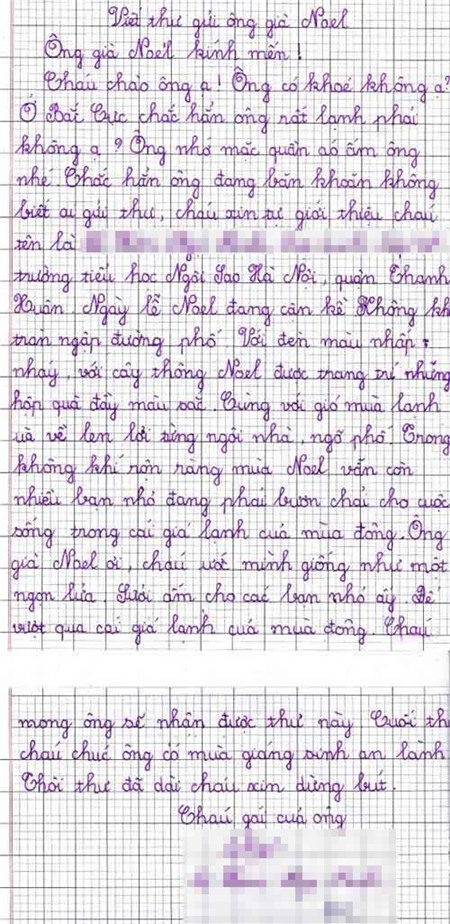 Viết thư gửi ông già Noel
Ông già Noel kính mến !
Cháu chào ông ạ ! Ông có khoẻ không ạ ?
Ở Bắt Cực chắc hẳn ông rất lạnh phải
không ạ ? Ông nhớ mặc quần áo ấm ông
nhé. Chắc hẳn ông đang băn khoăn không
biết ai gửi thư, cháu xin tự giới thiệu cháu
tên là
trường tiểu học Ngôi Sao Hà Nội, quận Thanh
Xuân. Ngày lễ Noel đang cận kề Không kh
tràn ngập đường phố. Với đèn màu nhấp
nháy, với cây thông Noel được trang trí những
hộp quà đầy màu sắc. Cùng với gió mùa lạnh
ùa về len lỏi từng ngôi nhà, ngõ phố. Trong
không khí rộn ràng mùa Noel vẫn còn
nhiều bạn nhỏ đang phải bươn chải cho cuộc
sống trong cái giá lạnh của mùa đông. Ông
già Noel ơi, cháu ước mình giống như một
ngọn lửa. Sưởi ấm cho các bạn nhỏ ấy. Để
vượt qua cái giá lạnh của mùa đông. Cháu
mong ông sẽ nhận được thư này Cuối th
cháu chúc ông có mùa giáng sinh an lành
Thôi thư đã dài cháu xin dừng bút.
Cháu gái của ông